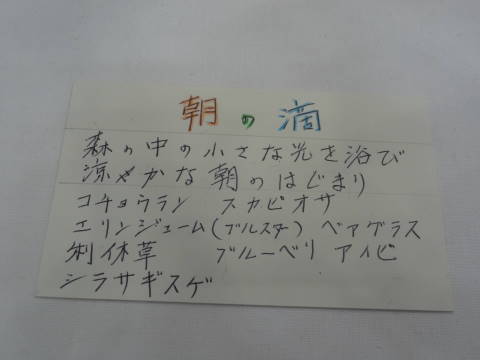 朝の滴
森の中の小さな光を浴び
涼やかな朝のはじまり
コチョウラン　スカビオサ
エリンジューム(ブルスター)　ベアグラス
利休草　ブルーベリ　アイビ
シラサギスゲ